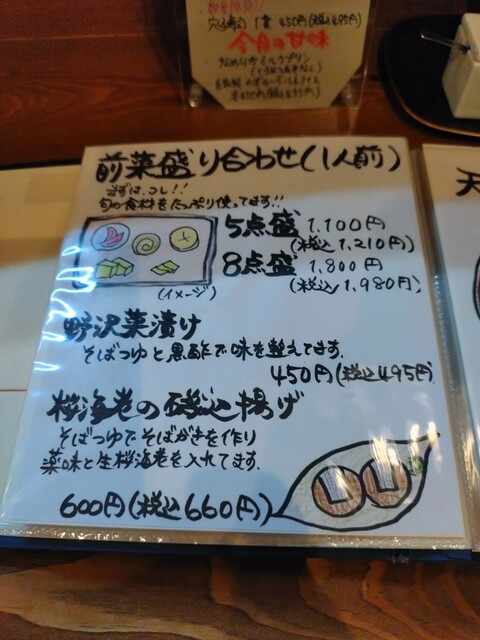 穴子寿司 1貫 450円(税込495円)
今月の甘味
前菜盛り合わせ(1人前)
まずは、コレ!!
旬の食材をたっぷり使ってます!!
5点盛 1,100円
(税込 1,210円)
8点盛 1,800円
(税込 1,980円)
(イメージ)
野沢菜漬け
そばつゆと黒酢で味を整えてます。
450円(税込495円)
桜海老の磯辺揚げ
そばつゆでそばがきを作り
薬味と生桜海老を入れてます。
600円(税込660円)
天